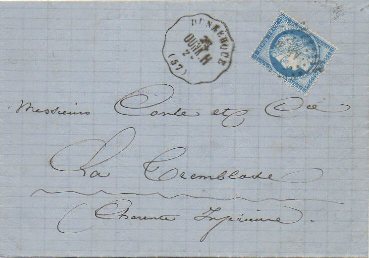 DUNKERQUE
(57)
Messieurs Conte et Cie
La Tremblade
Charente Inférieure.